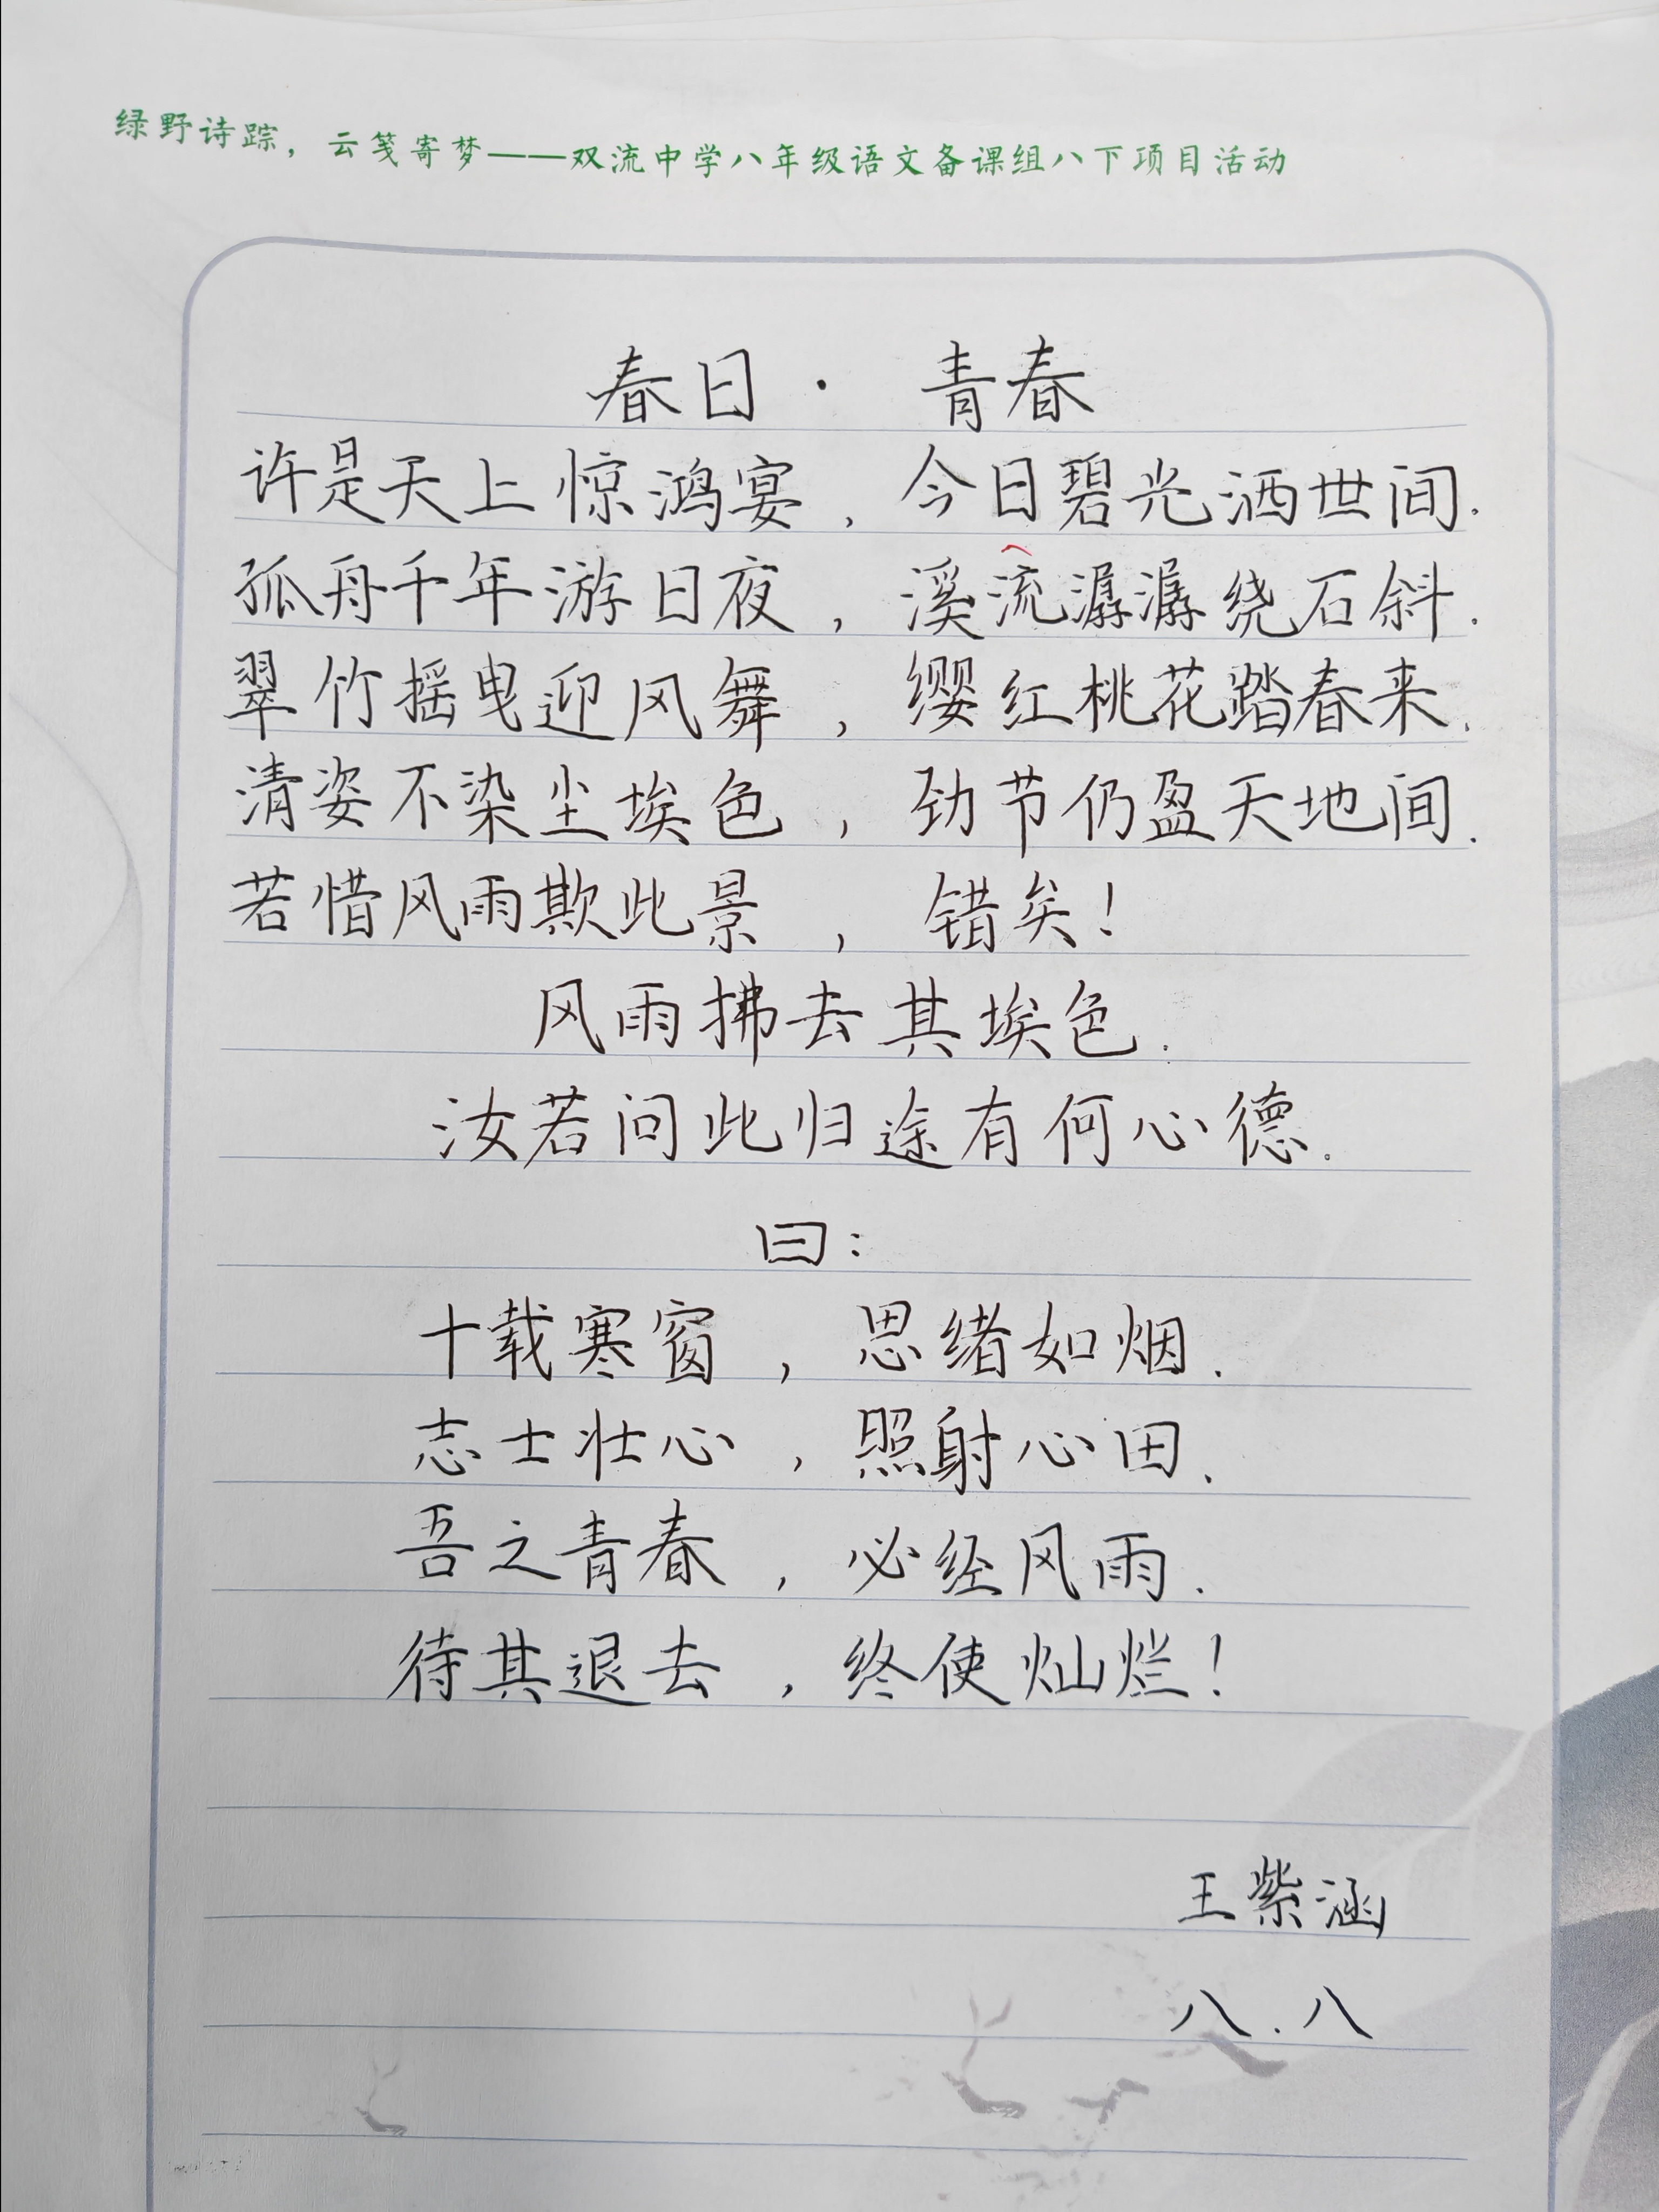 绿野诗踪，云笺寄梦——双流中学八年级语文备课组八下项目活动
春日· 青春
许是天上惊鸿宴，今日碧光洒世间.
孤舟千年游日夜，溪流潺潺绕石斜.
翠竹摇曳迎风舞，缨红桃花踏春来.
清姿不染尘埃色，劲节仍盈天地间.
若惜风雨欺此景，错矣！
风雨拂去其埃色.
汝若问此归途有何心德.
曰：
十载寒窗，思绪如烟.
志士壮心，照射心田.
吾之青春，必经风雨.
待其退去，终使灿烂！
王紫涵
八.八